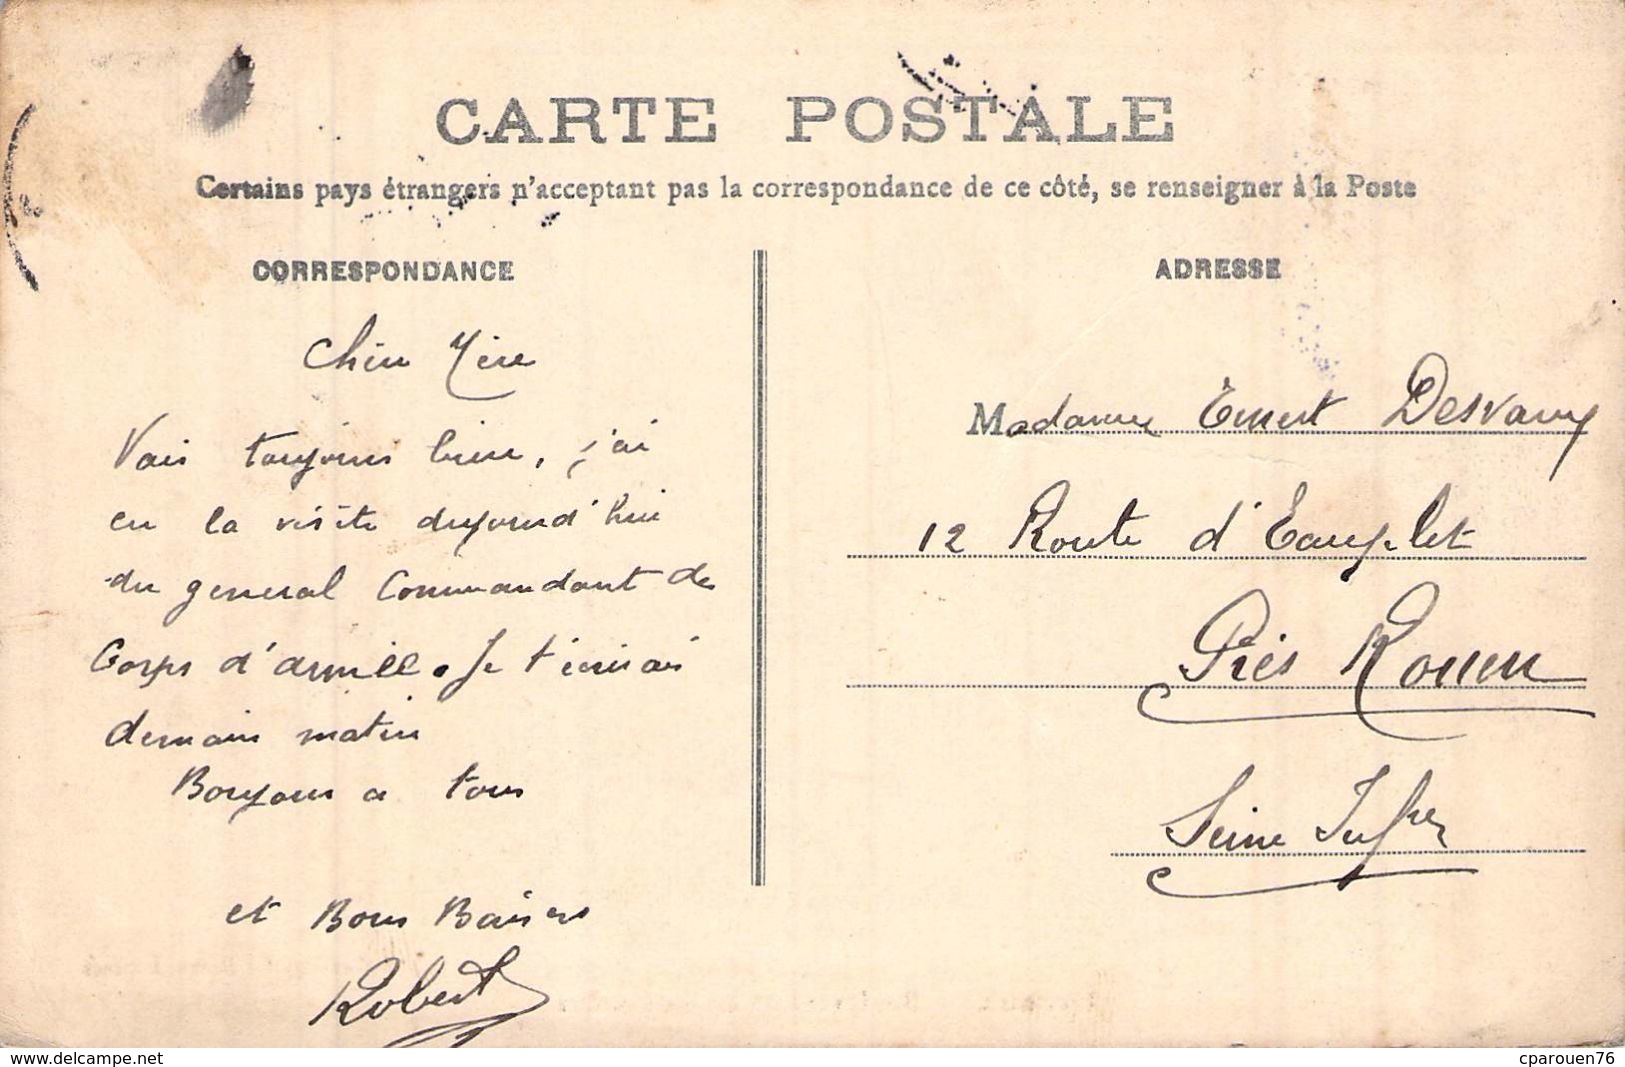 CARTE POSTALE
Certains pays étrangers n'acceptant pas la correspondance de ce côté, se renseigner à la Poste
CORRESPONDANCE
Chère Mère
Vais toujours bien, j'ai
eu la visite aujourd'hui
du general Commandant de
Corps d'armée. Je t'écrirais
demain matin
Bonjour a tous
et Bons Baisers
Robert
ADRESSE
Madame Ernest
12 Route d'Eauplet
Près Rouen
Seine Infre
www.delcampe.net
cparouen76